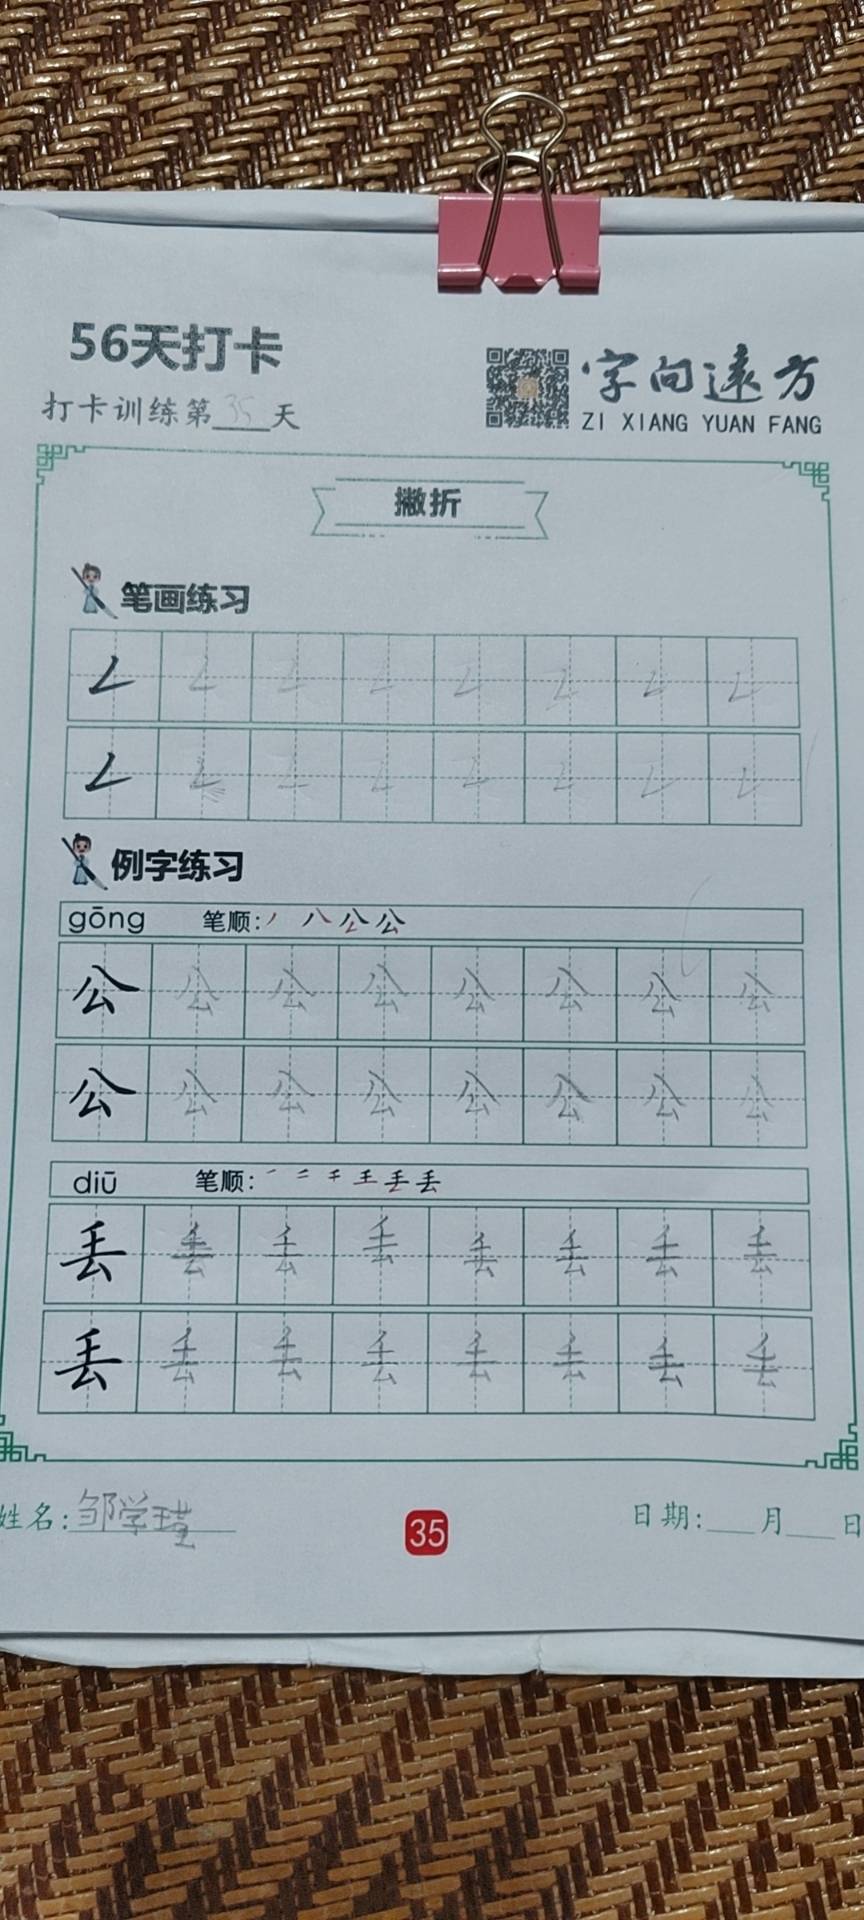 56天打卡
打卡训练第35天
字向遠方
ZI XIANG YUAN FANG
撇折
笔画练习
𠃋 𠃋 𠃋 𠃋 𠃋 𠃋 𠃋 𠃋
𠃋 𠃋 𠃋 𠃋 𠃋 𠃋 𠃋 𠃋
例字练习
gōng 笔顺:
公 公 公 公 公 公 公 公
公 公 公 公 公 公 公 公
diū 笔顺:
丢 丢 丢 丢 丢 丢 丢 丢
丢 丢 丢 丢 丢 丢 丢 丢
姓名:邹学瑾 35 日期:___月___日